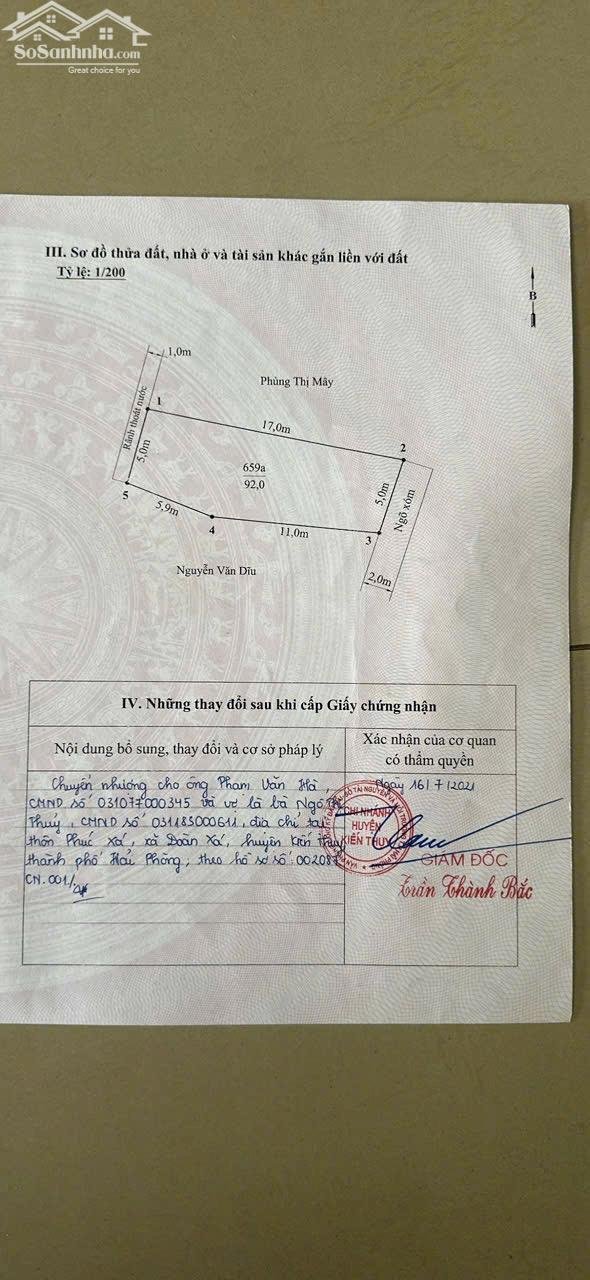 SoSanhnha.com
Great choice for you
III. Sơ đồ thửa đất, nhà ở và tài sản khác gắn liền với đất
Tỷ lệ: 1/200
B
1,0m
Phùng Thị Mây
Rãnh thoát nước
1
17,0m
2
5,0m
659a
92,0
5,0m
Ngõ xóm
5
5,9m
4
11,0m
3
2,0m
Nguyễn Văn Dĩu
IV. Những thay đổi sau khi cấp Giấy chứng nhận
Nội dung bổ sung, thay đổi và cơ sở pháp lý
Xác nhận của cơ quan
có thẩm quyền
Chuyển nhượng cho ông Phạm Văn Hà,
CMND số 031077000345 và vợ là bà Ngô Thị
Thuỷ, CMND số 031183000611, địa chỉ tại
thôn Phúc Xá, xã Đoàn Xá, huyện Kiến Thuỵ
thành phố Hải Phòng; theo hồ sơ số 002087
CN.001./
Ngày 16/7/2021
CHI NHÁNH
HUYỆN
KIẾN THUỴ
GIÁM ĐỐC
Trần Thành Bắc